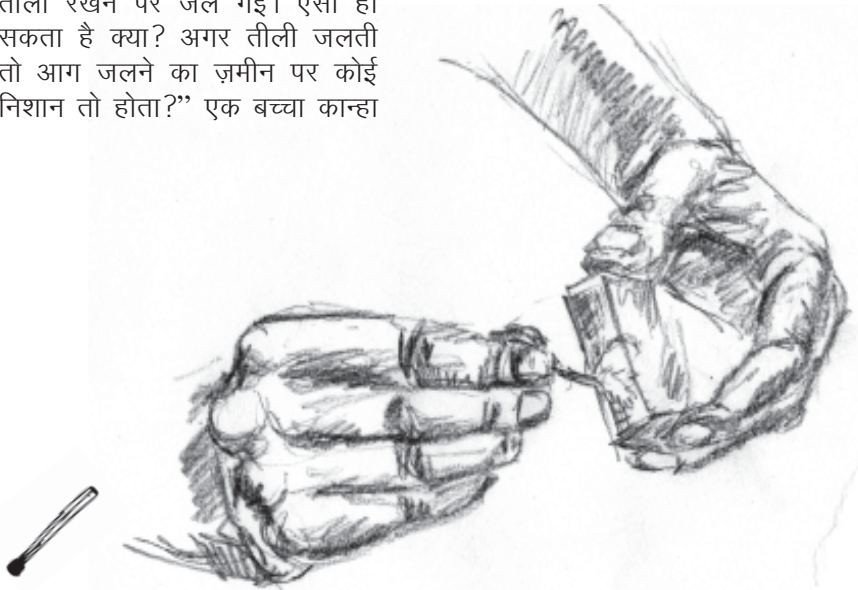 तीली रखने पर जल गई। ऐसा हो
सकता है क्या? अगर तीली जलती
तो आग जलने का ज़मीन पर कोई
निशान तो होता?” एक बच्चा कान्हा